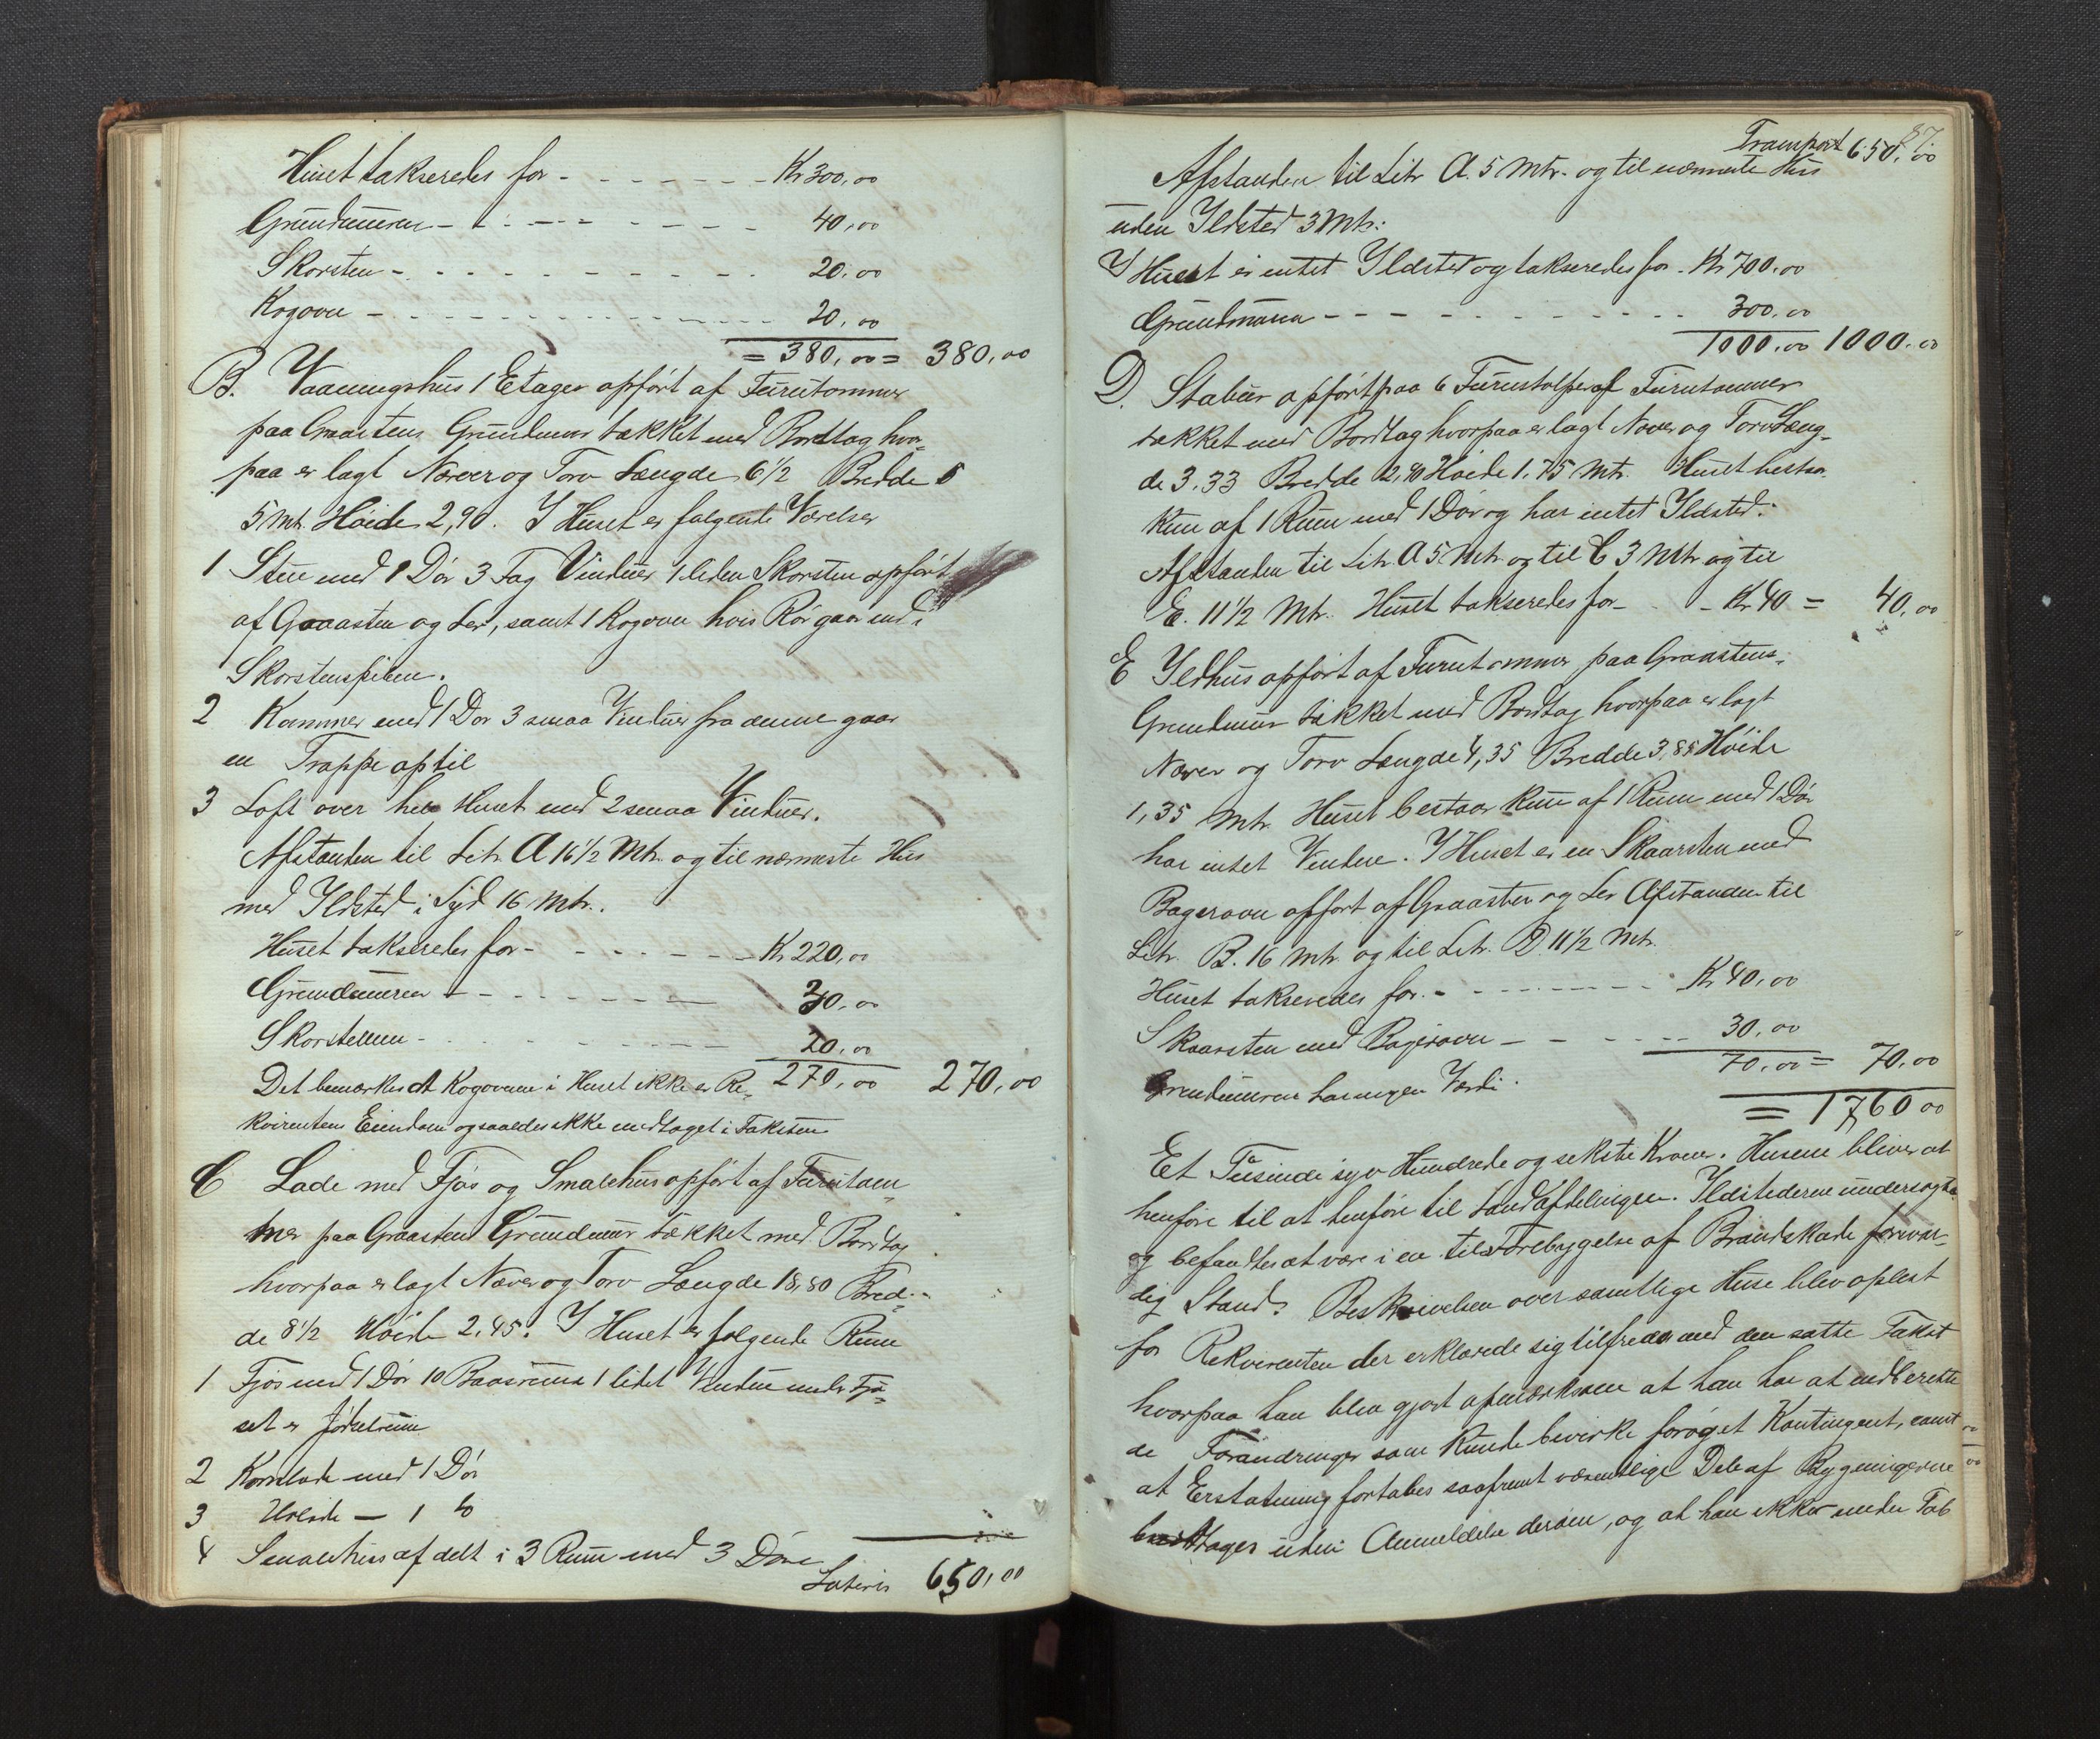 Huset takseredes for - - - - - - - Kr 300,00
Grundmuren - - - - - - - - 40,00
Skorsten - - - - - - - - - 20,00
Kogovn - - - - - - - - - - 20,00
= 380,00 = 380,00
B. Vaaningshus 1 Etages opført af Furutømmer
paa Graastens Grundmur tækket med Bordtag hvor-
paa er lagt Næver og Torv Længde 6 1/2 Bredde
5 Mtr. Høide 2,90. I Huset er følgende Værelser
1 Stue med 1 Dør 3 Fag Vinduer 1 liden Skorsten opført
af Graasten og Ler, samt 1 Kogovn hvis Rør gaar ind i
Skorstenspiben.
2 Kammer med 1 Dør 3 smaa Vinduer fra denne gaar
en Trappe op til
3 Loft over hele Huset med 2 smaa Vinduer.
Afstanden til Litr. A 16 1/2 Mtr. og til nærmeste Hus
med Ildsted i Syd 16 Mtr.
Huset takseredes for - - - - - - Kr 220,00
Grundmuren - - - - - - - 30,00
Skorstenen - - - - - - - 20,00
Det bemærkes at Kogovnen i Huset ikke er Re- 270,00 270,00
kvirentens Eiendom og saaledes ikke medtaget i Taksten
C Lade med Fjøs og Smalehus opført af Furutøm-
mer paa Graastens Grundmur tækket med Bordtag
hvorpaa er lagt Næver og Torv Længde 18,80 Bred-
de 8 1/2 Høide 2,45. I Huset er følgende Rum
1 Fjøs med 1 Dør 10 Baasrum 1 lidet Vindue under Fjø-
set er Gjødselrum
2 Kornlade med 1 Dør
3 Hølade - 1 do
4 Smalehus afdelt i 3 Rum med 3 Døre
Lateris 650,00
87.
Transport 650,00
Afstanden til Litr A. 5 Mtr. og til nærmeste Hus
uden Ildsted 3 Mtr.
I Huset er intet Ildsted og takseredes for - Kr 700,00
Grundmuren - - - - - - - - - 300,00
1000,00 1000,00
D. Stabur opført paa 6 Furustolper af Furutømmer
tækket med Bordtag hvorpaa er lagt Næver og Torv Læng-
de 3,33 Bredde 2,80 Høide 1,75 Mtr. Huset bestaar
kun af 1 Rum med 1 Dør og har intet Ildsted.
Afstanden til Litr. A 5 Mtr og til C 3 Mtr og til
E. 11 1/2 Mtr. Huset takseredes for - - Kr 40 = 40,00
E Ildhus opført af Furutømmer paa Graastens
Grundmur tækket med Bordtag hvorpaa er lagt
Næver og Torv Længde 4,35 Bredde 3,85 Høide
1,35 Mtr. Huset bestaar kun af 1 Rum med 1 Dør
har intet Vindue. I Huset er en Skaarsten med
Bagerovn opført af Graasten og Ler Afstanden til
Litr. B. 16 Mtr og til Litr. D. 11 1/2 Mtr.
Huset takseredes for - - - - - - - Kr 40,00
Skaarsten med Bagerovn - - - - 30,00
70,00 = 70,00
Grundmuren har ingen Værdi.
= 1760,00
Et Tusinde syv Hundrede og sekste Kroner. Husene bliver at
henføre til at henføre til Landafdelingen. Ildstederne undersøgtes
og befandtes at være i en til Forebygelse af Brandskade forsvar-
lig Stand. Beskrivelsen over samtlige Huse blev oplest
for Rekvirenten der erklærede sig tilfreds med den satte Takst
hvorpaa han blev gjort opmærksom at han har at indberette
de Forandringer som kunde bevirke forøget Kontingent, samt
at Erstatning fortabes saafremt væsentlige Dele af Bygningerne
borttages uden Anmeldelse derom, og at han ikke under Tab